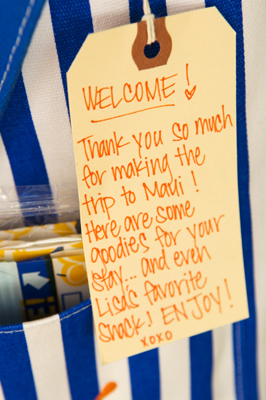 WELCOME!
Thank you so much
for making the
trip to Maui!
Here are some
goodies for your
stay... and even
Lisa's favorite
snack! ENJOY!
XOXO